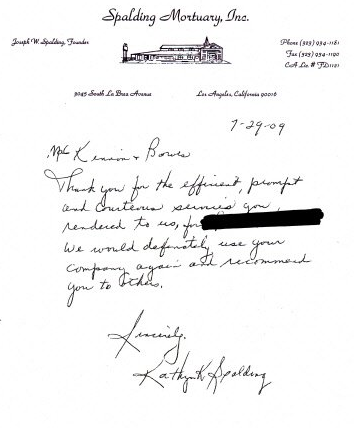 Spalding Mortuary, Inc.
Joseph W. Spalding, Founder
Phone (323) 934-1181
Fax (323) 934-1190
CA Lic. # FD1121
3045 South La Brea Avenue
Los Angeles, California 90016
7-29-09
& Bowes
Thank you for the efficient, prompt
and courteous services you
rendered to us, for
We would definately use your
company again and recommend
you to others.
Sincerely,
Kathryn K Spalding